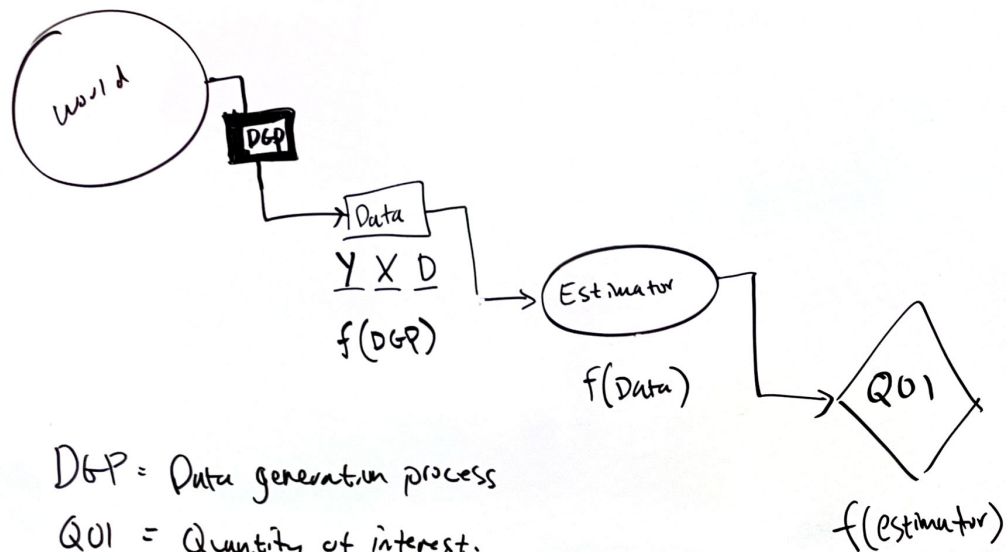 World
DGP
Data
Y X D
f(DGP)
Estimator
f(Data)
QOI
f(estimator)
DGP = Data generation process
QOI = Quantity of interest.